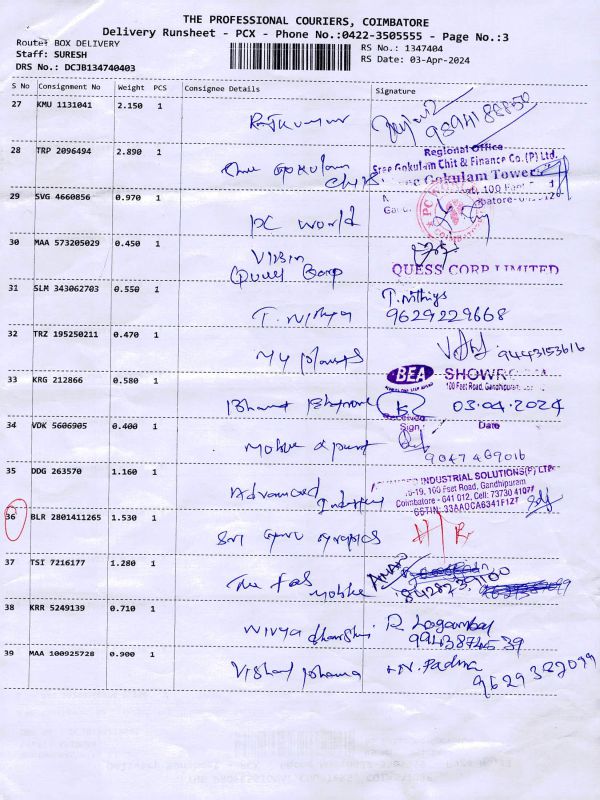 THE PROFESSIONAL COURIERS, COIMBATORE
Delivery Runsheet - PCX - Phone No.:0422-3505555 - Page No.:3
Route: BOX DELIVERY
RS No.: 1347404
Staff: SURESH
RS Date: 03-Apr-2024
DRS No.: DCJB134740403
S No Consignment No Weight PCS Consignee Details Signature
27 KMU 1131041 2.150 1 Rajkumar
28 TRP 2096494 2.890 1 Gokulam Chit
Regional Office
Sree Gokulam Chit & Finance Co.(P) Ltd.
Gokulam Tower
100 Feet
29 SVG 4660856 0.970 1 PC World
30 MAA 573205029 0.450 1
Quess Corp
QUESS CORP LIMITED
31 SLM 343062703 0.550 1 T. Nithya T. Nithya
9629229668
32 TRZ 195250211 0.470 1 My plants 9443153616
BEA SHOWR
100 Feet Road, Gandhipuram
33 KRG 212866 0.580 1 Bharat 03.04.2024
Received
Sign: Date
34 VDK 5606905 0.400 1 Mobile
9047469016
35 DDG 263570 1.160 1 Advanced
Industries
INDUSTRIAL SOLUTIONS(P) LTD
100 Feet Road, Gandhipuram
Coimbatore - 641 012, Cell: 73730 41077
GSTIN: 33AAOCA6341F1Z7
36 BLR 2801411265 1.530 1 Sri Guru Graphics
37 TSI 7216177 1.280 1 The
Mobile
38 KRR 5249139 0.710 1 Nivya R Logambal
9943874539
39 MAA 100925728 0.900 1 Vishal Pharma N. Padma